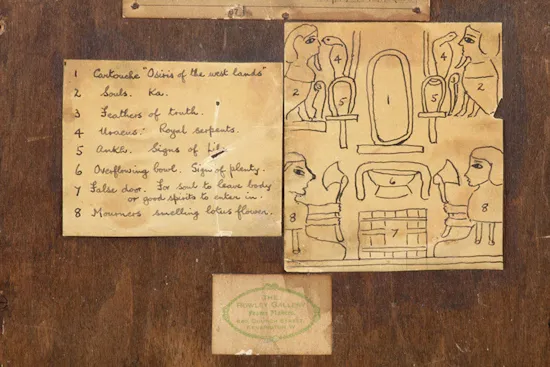 1 Cartouche "Osiris of the west lands"
2 Souls. Ka.
3 Feathers of truth.
4 Uraeus. Royal serpents.
5 Ankhs. Signs of
6 Overflowing bowl. Sign of plenty.
7 False door. For soul to leave body
or good spirits to enter in.
8 Mourners smelling lotus flower.
4 4
2 5 1 5 2
6
8 8
7
THE
GALLERY
CHURCH STREET,
KENSINGTON W.